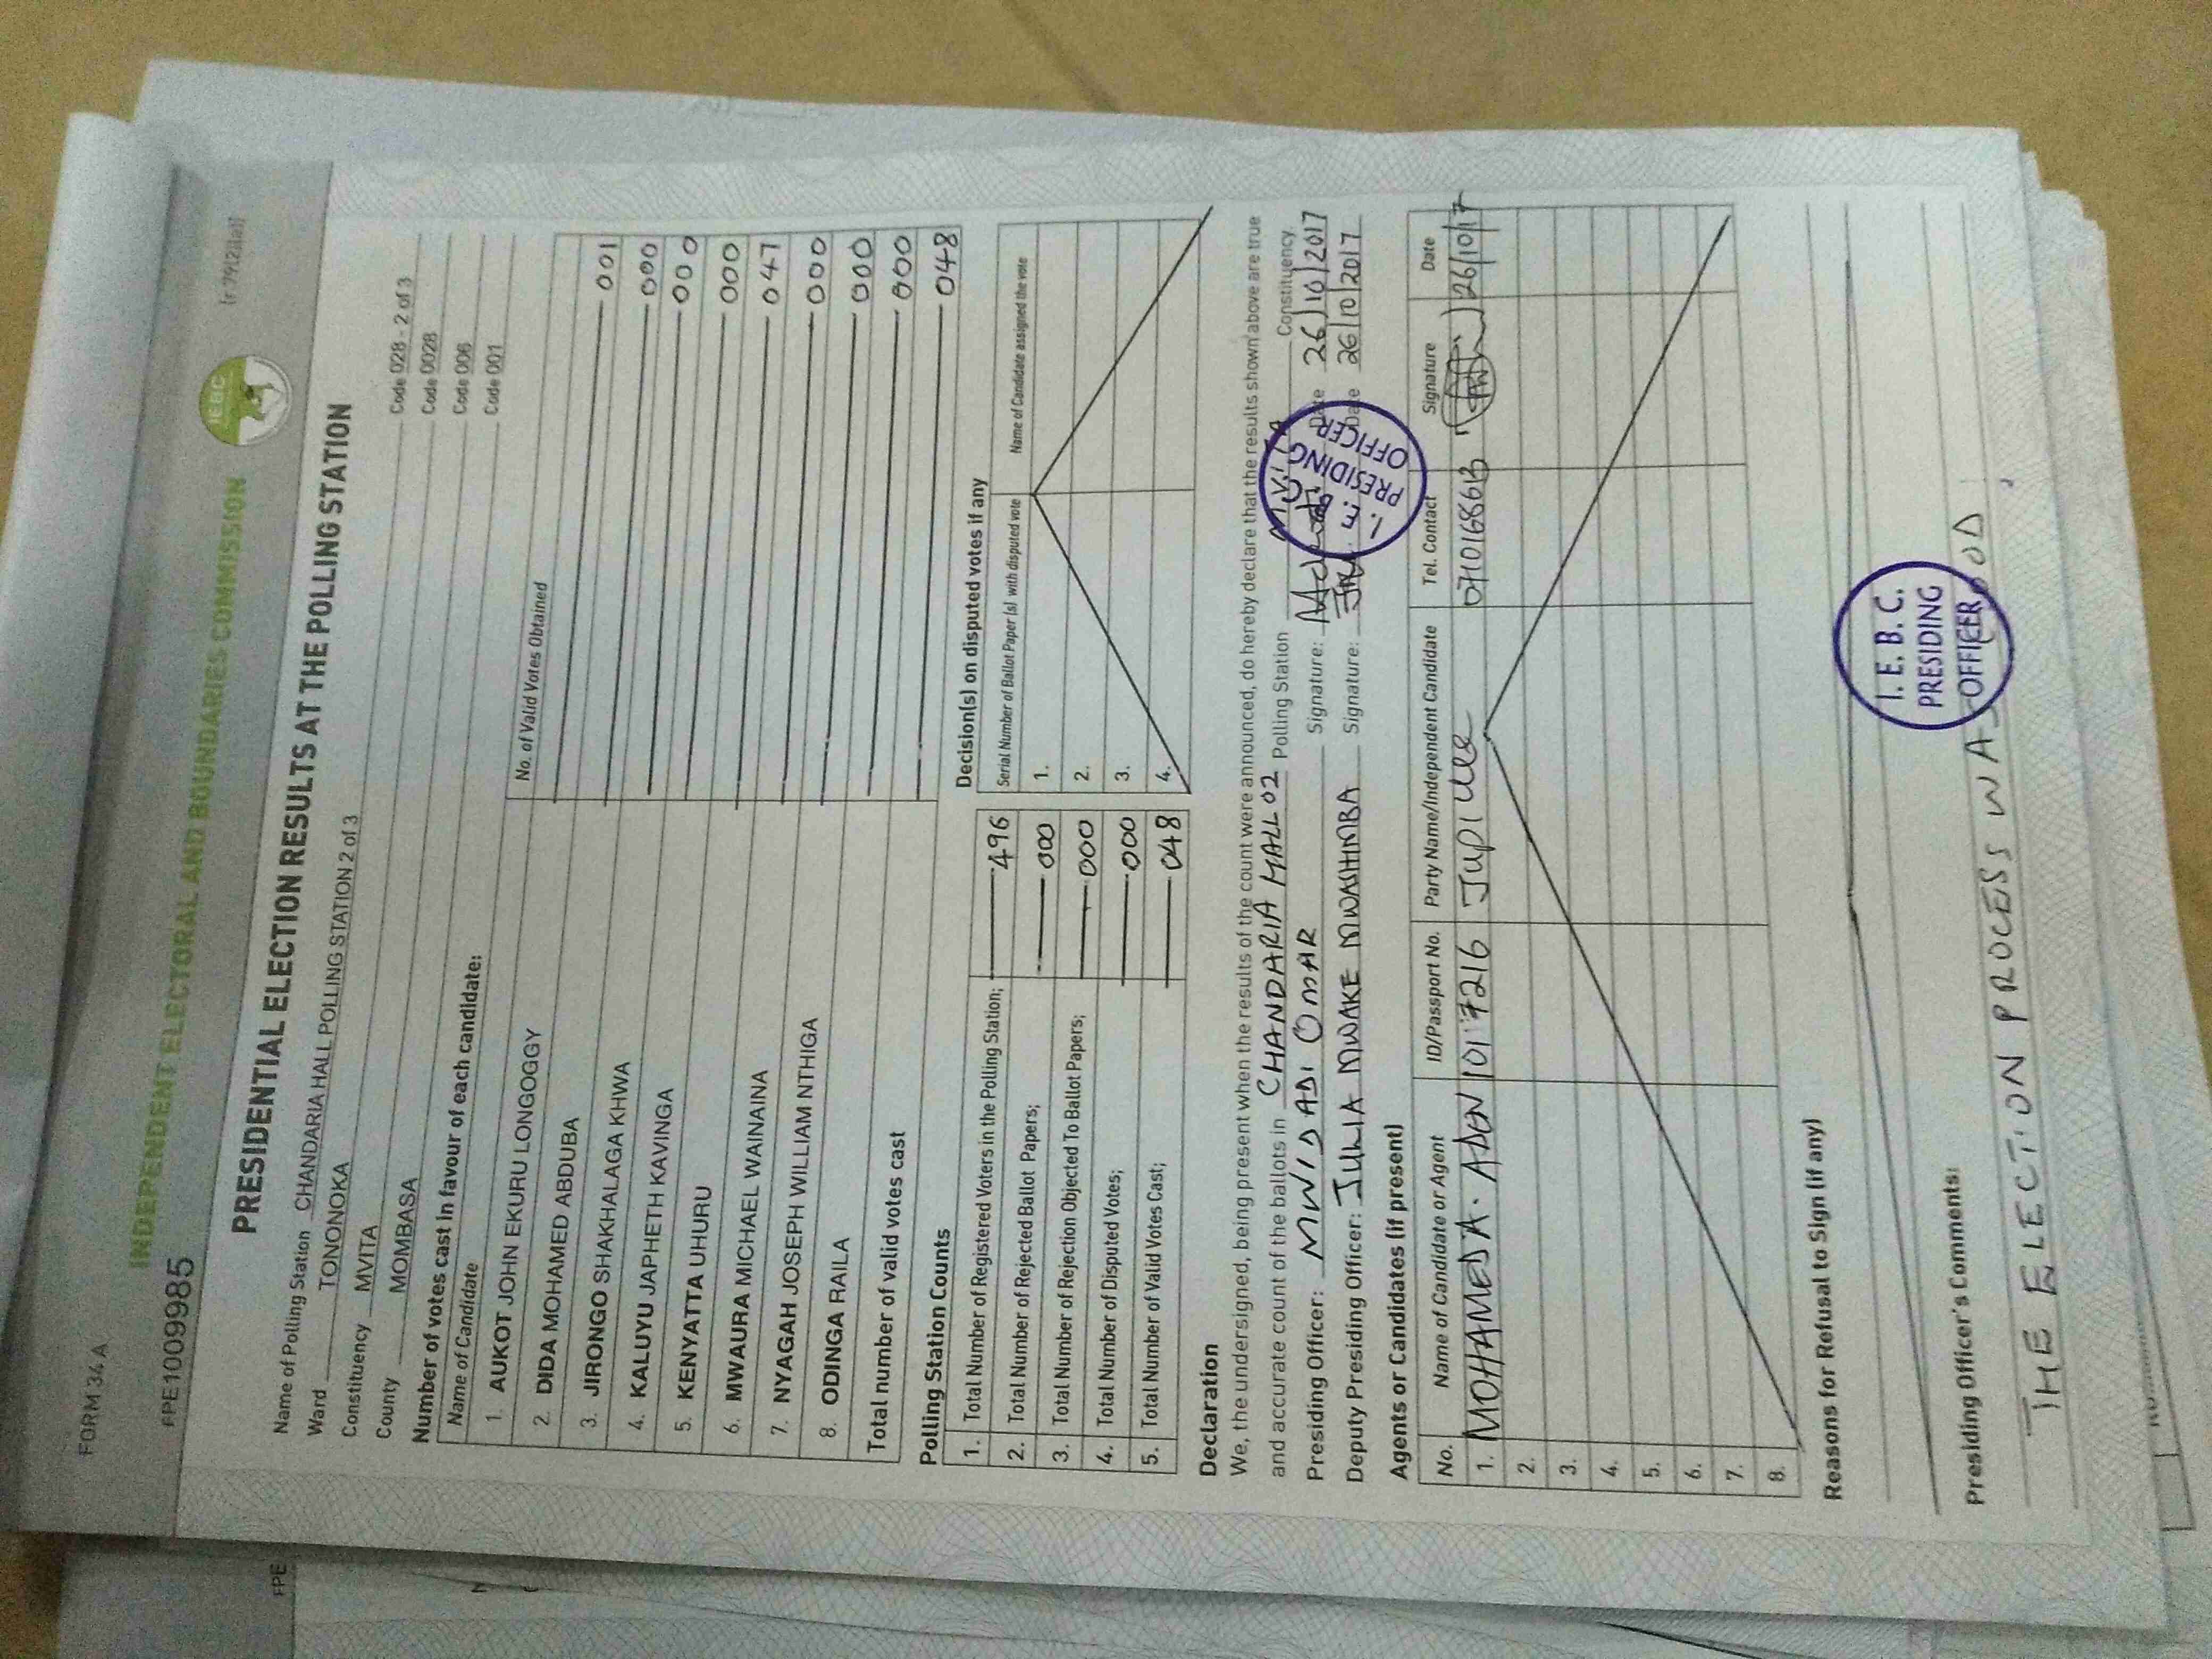 FORM 34 A
INDEPENDENT ELECTORAL AND BOUNDARIES COMMISSION
IEBC
(r 79(2)(a))
FPE1009985
PRESIDENTIAL ELECTION RESULTS AT THE POLLING STATION
Name of Polling Station CHANDARIA HALL POLLING STATION 2 of 3 Code 028 - 2 of 3
Ward TONONOKA Code 0028
Constituency MVITA Code 006
County MOMBASA Code 001
Number of votes cast in favour of each candidate:
Name of Candidate No. of Valid Votes Obtained
1. AUKOT JOHN EKURU LONGOGGY 001
2. DIDA MOHAMED ABDUBA 000
3. JIRONGO SHAKHALAGA KHWA 000
4. KALUYU JAPHETH KAVINGA 000
5. KENYATTA UHURU 047
6. MWAURA MICHAEL WAINAINA 000
7. NYAGAH JOSEPH WILLIAM NTHIGA 000
8. ODINGA RAILA 000
Total number of valid votes cast 048
Polling Station Counts
1. Total Number of Registered Voters in the Polling Station; 496
2. Total Number of Rejected Ballot Papers; 000
3. Total Number of Rejection Objected To Ballot Papers; 000
4. Total Number of Disputed Votes; 000
5. Total Number of Valid Votes Cast; 048
Decision(s) on disputed votes if any
Serial Number of Ballot Paper (s) with disputed vote Name of Candidate assigned the vote
1.
2.
3.
4.
Declaration
We, the undersigned, being present when the results of the count were announced, do hereby declare that the results shown above are true
and accurate count of the ballots in CHANDARIA HALL 02 Polling Station MVITA Constituency.
Presiding Officer: MWIDADI OMAR Signature: Date 26/10/2017
Deputy Presiding Officer: JULIA MWAKE MWASHIMBA Signature: Date 26/10/2017
I. E. B. C.
PRESIDING
OFFICER
Agents or Candidates (if present)
No. Name of Candidate or Agent ID/Passport No. Party Name/Independent Candidate Tel. Contact Signature Date
1. MOHAMED A. ADEN 10117216 26/10/17
2.
3.
4.
5.
6.
7.
8.
Reasons for Refusal to Sign (if any)
I. E. B. C.
PRESIDING
OFFICER
Presiding Officer's Comments:
THE ELECTION PROCESS WAS GOOD
FPE